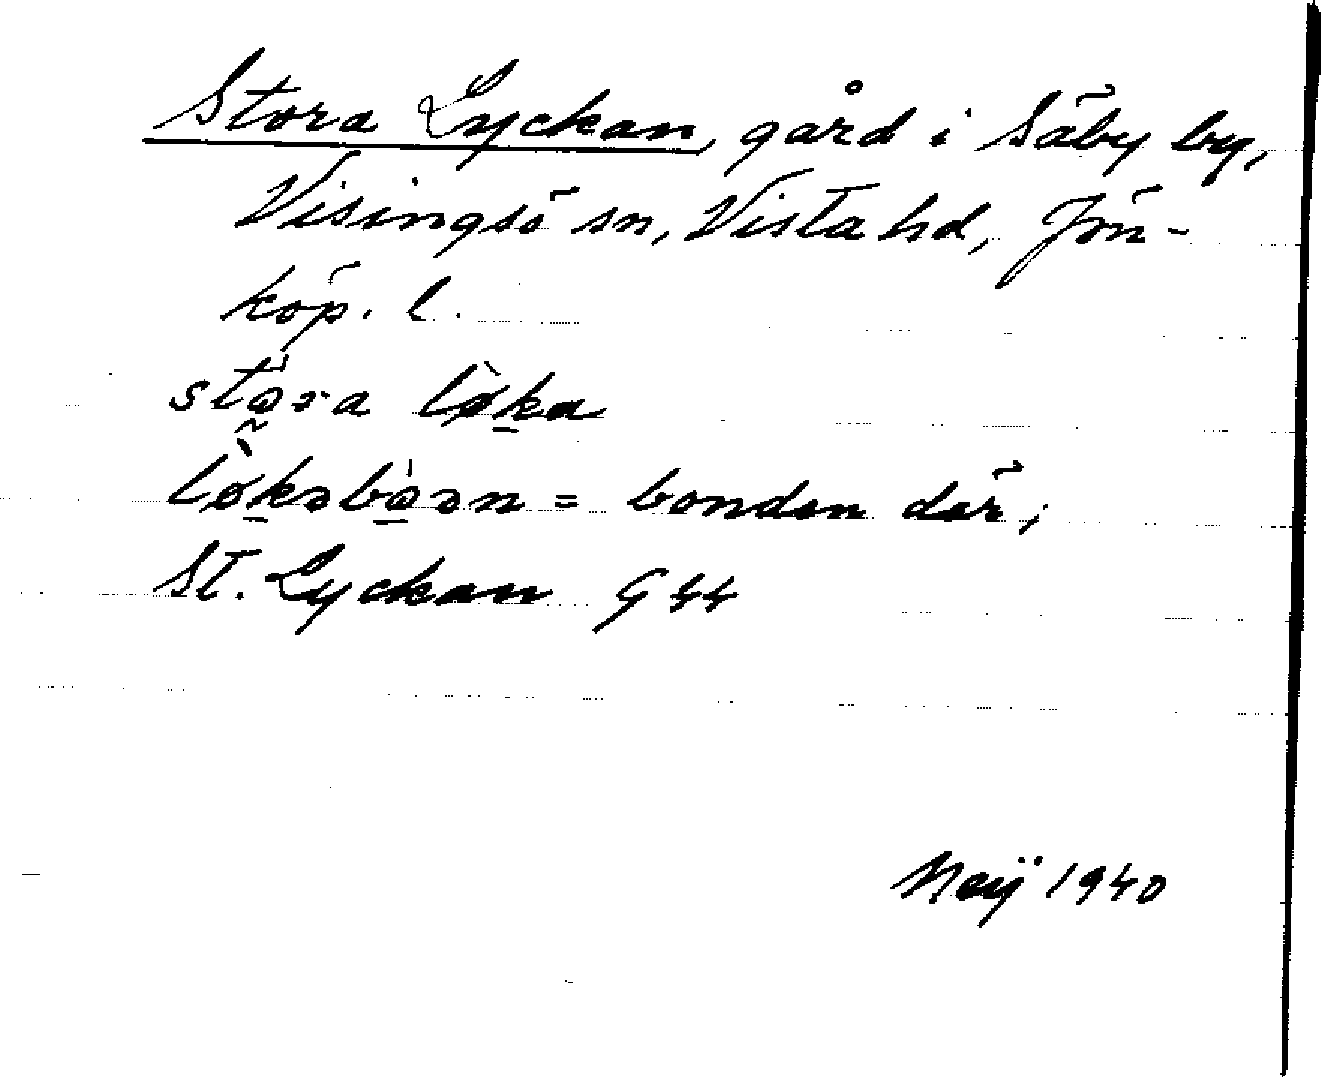 Stora Lyckan, gård i Säby by,
Visingsö sn, Vista hd, Jön-
köp. l.
stø̀ra lø̀ka
lø̀kəbòən = bonden där;
St. Lyckan G 44
Meÿ 1940